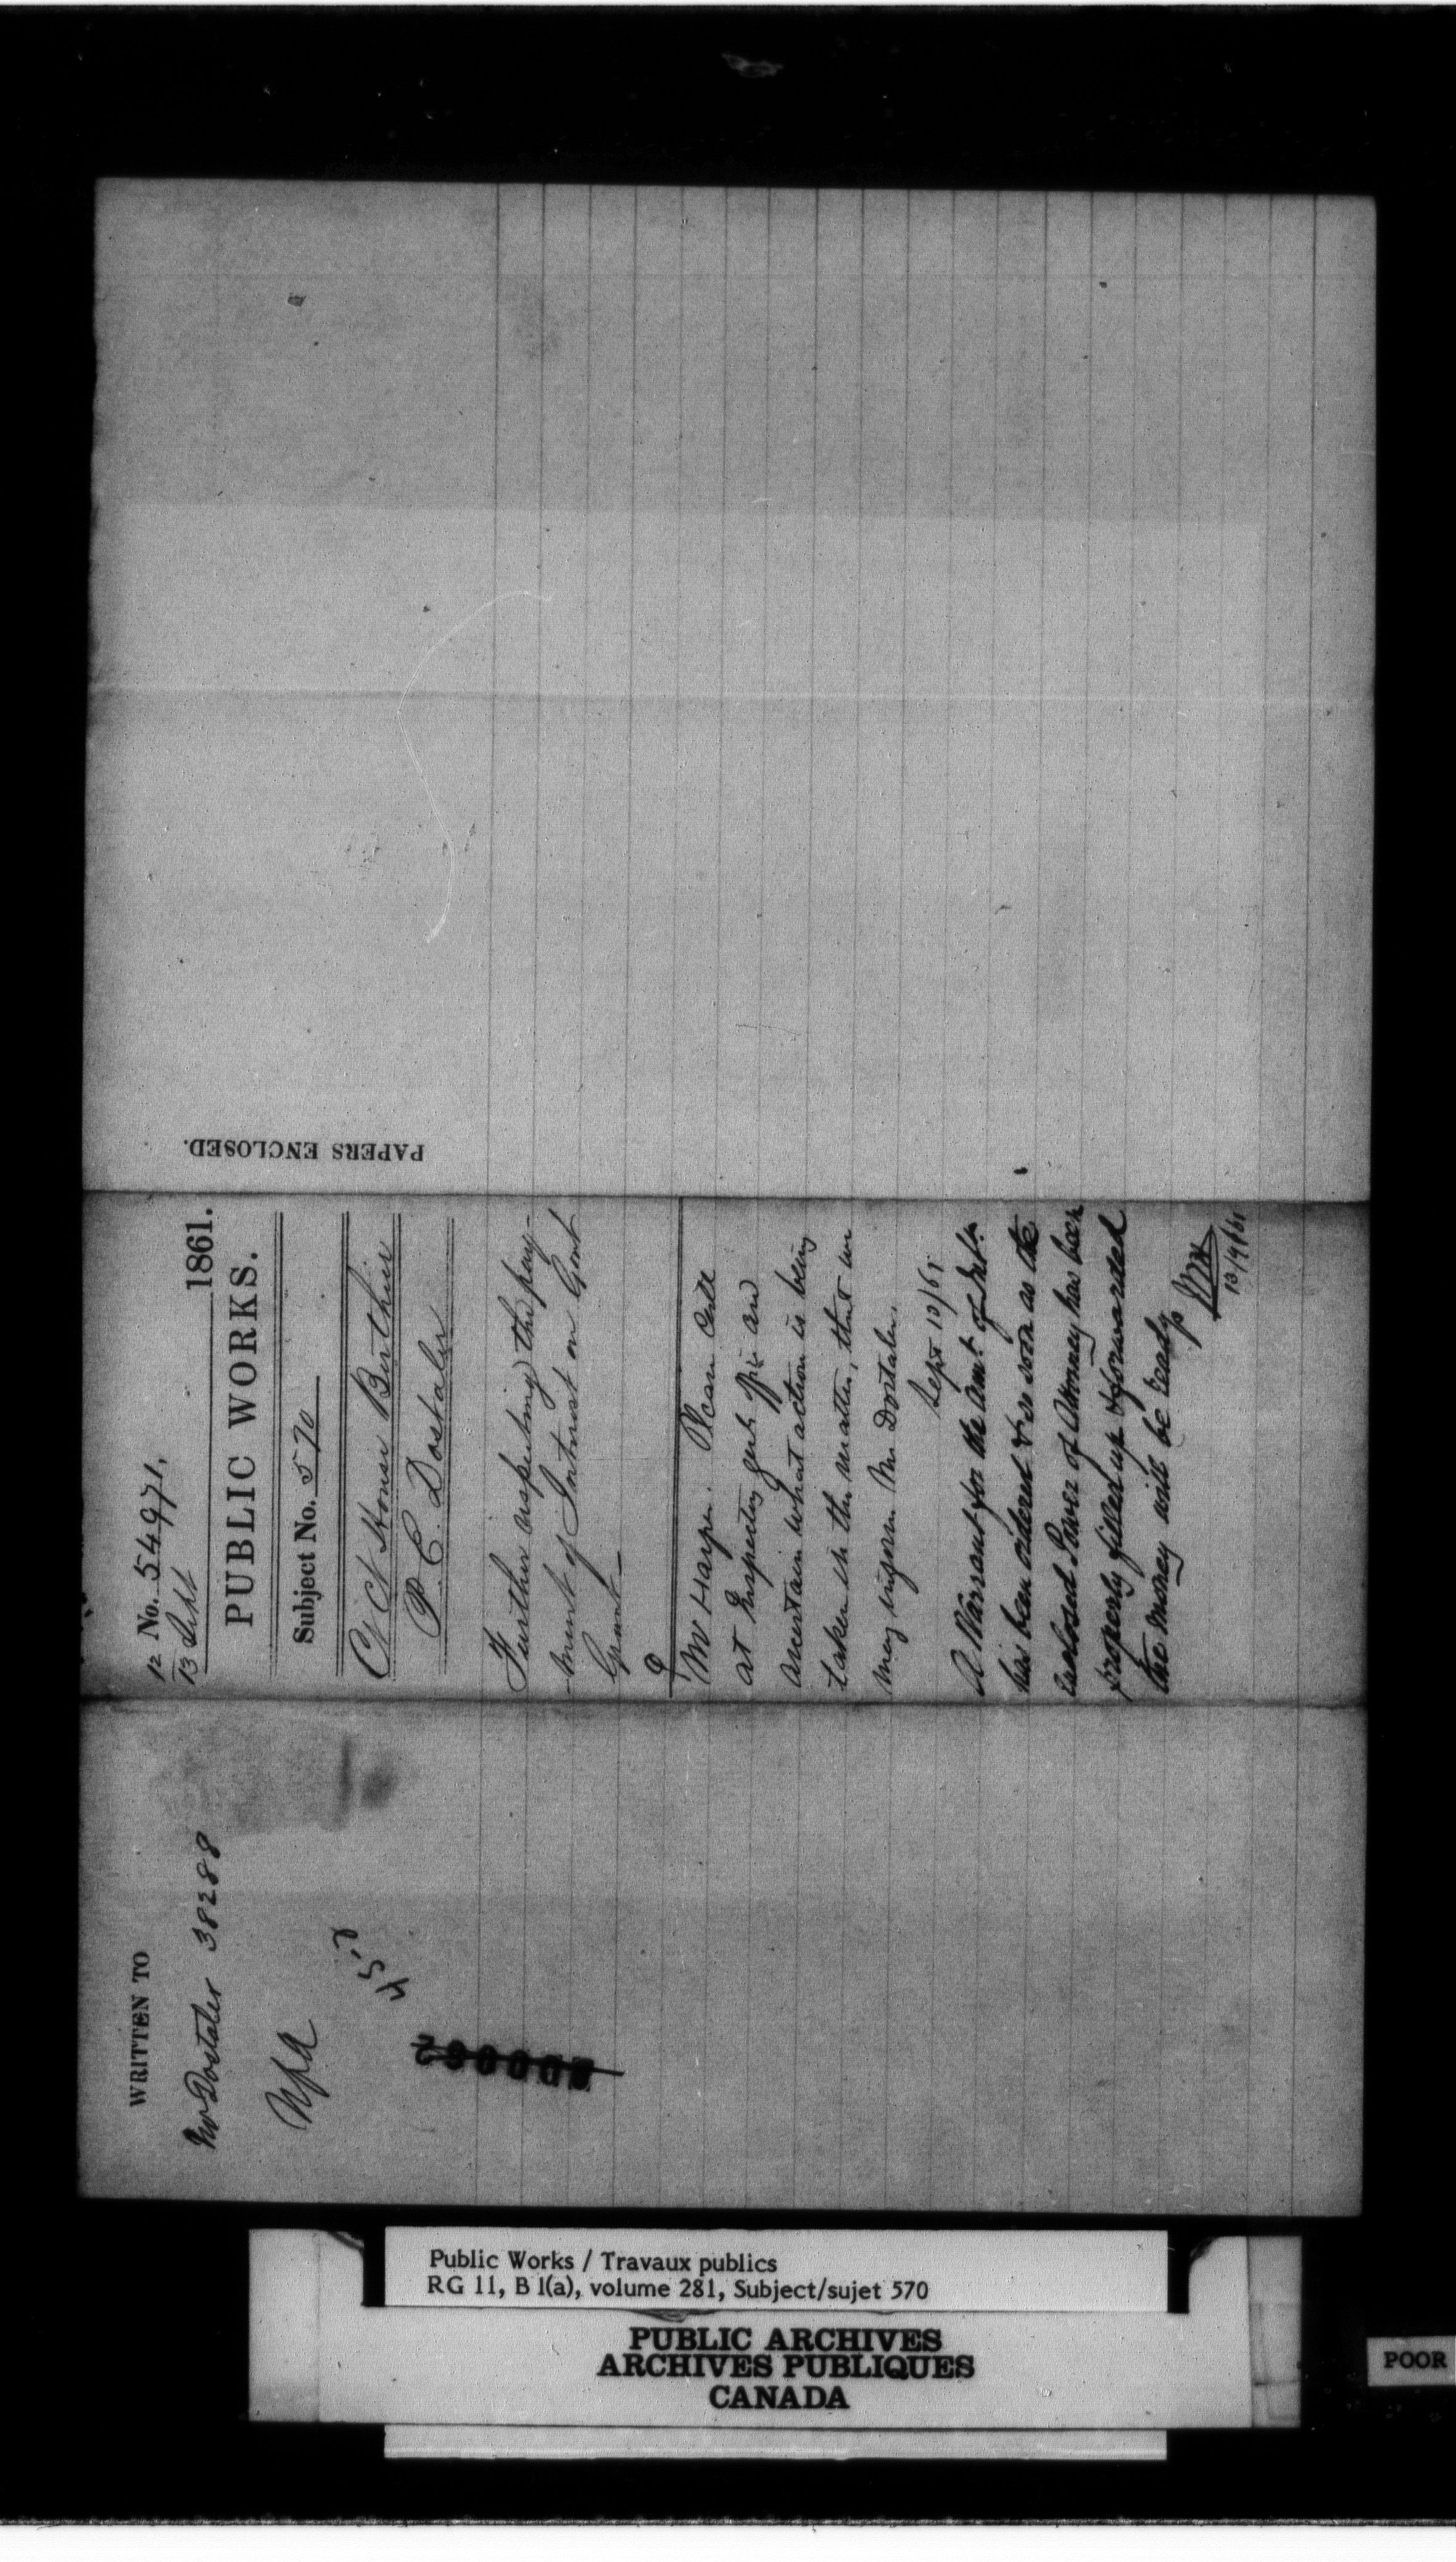 PAPERS ENCLOSED.
12 No. 54971,
13 Sept 1861.
PUBLIC WORKS.
Subject No. 570
Ct House Berthier
P. E. Dostaler
Further respecting the pay-
-ment of Interest on Govt
Grant_
Mr Harper. Please call
at Inspecting Genls Off: and
ascertain what action is being
taken in the matter, that we
may inform Mr Dostaler.
Sept 13/61
A Warrant for the amt of Int.
has been ordered & so soon as the
enclosed Power of Attorney has been
properly filled up & forwarded
the money will be ready
13/9/61
WRITTEN TO
Mr Dostaler 38288
Public Works / Travaux publics
RG 11, B 1(a), volume 281, Subject/sujet 570
PUBLIC ARCHIVES
ARCHIVES PUBLIQUES
CANADA
POOR